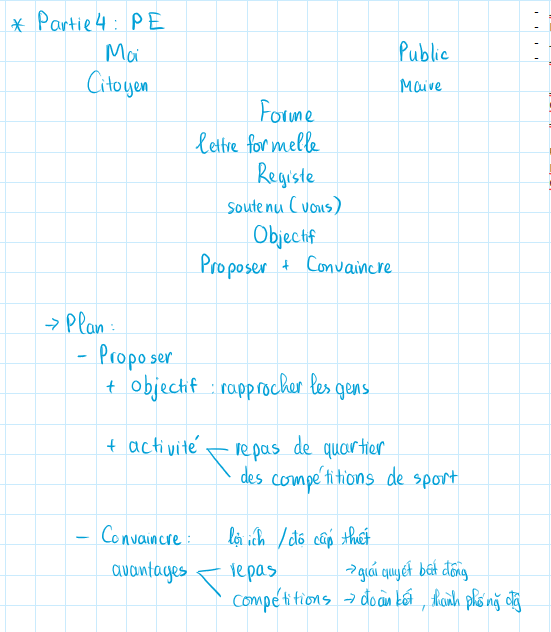 * Partie 4 : PE
Moi Public
Citoyen Maire
Forme
lettre formelle
Registe
soutenu (vous)
Objectif
Proposer + Convaincre
→ Plan :
- Proposer
+ Objectif : rapprocher les gens
+ activité repas de quartier
des compétitions de sport
- Convaincre : lợi ích / độ cấp thiết
avantages repas → giải quyết bất đồng
compétitions → đoàn kết, thành phố năng độ